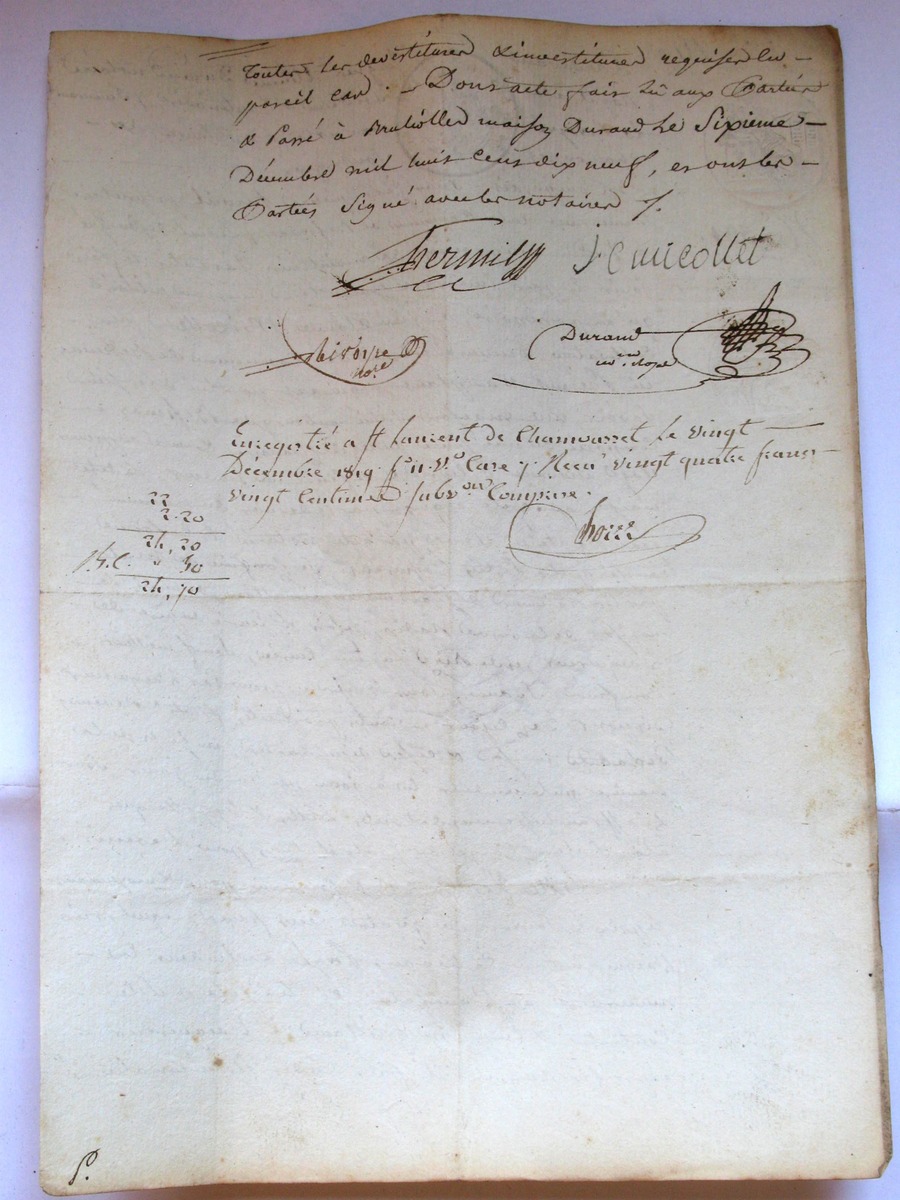 toutes les devestitures & investitures requises en
pareil cas. Dont acte fait Lû aux Parties
& Passé à Brullioles maison Durand Le Sixieme
Décembre mil huit cent dix neuf, et ont les
Parties Signé avec les notaires
Thermily J C nicollet
Durand
nore
Enregistré a St Laurent de Chamousset Le vingt
Décembre 1819 fo 11 vo Case 7 Recu vingt quatre francs
vingt Centimes Subvon Comprise.
22
2.20
24,20
" 50
24,70